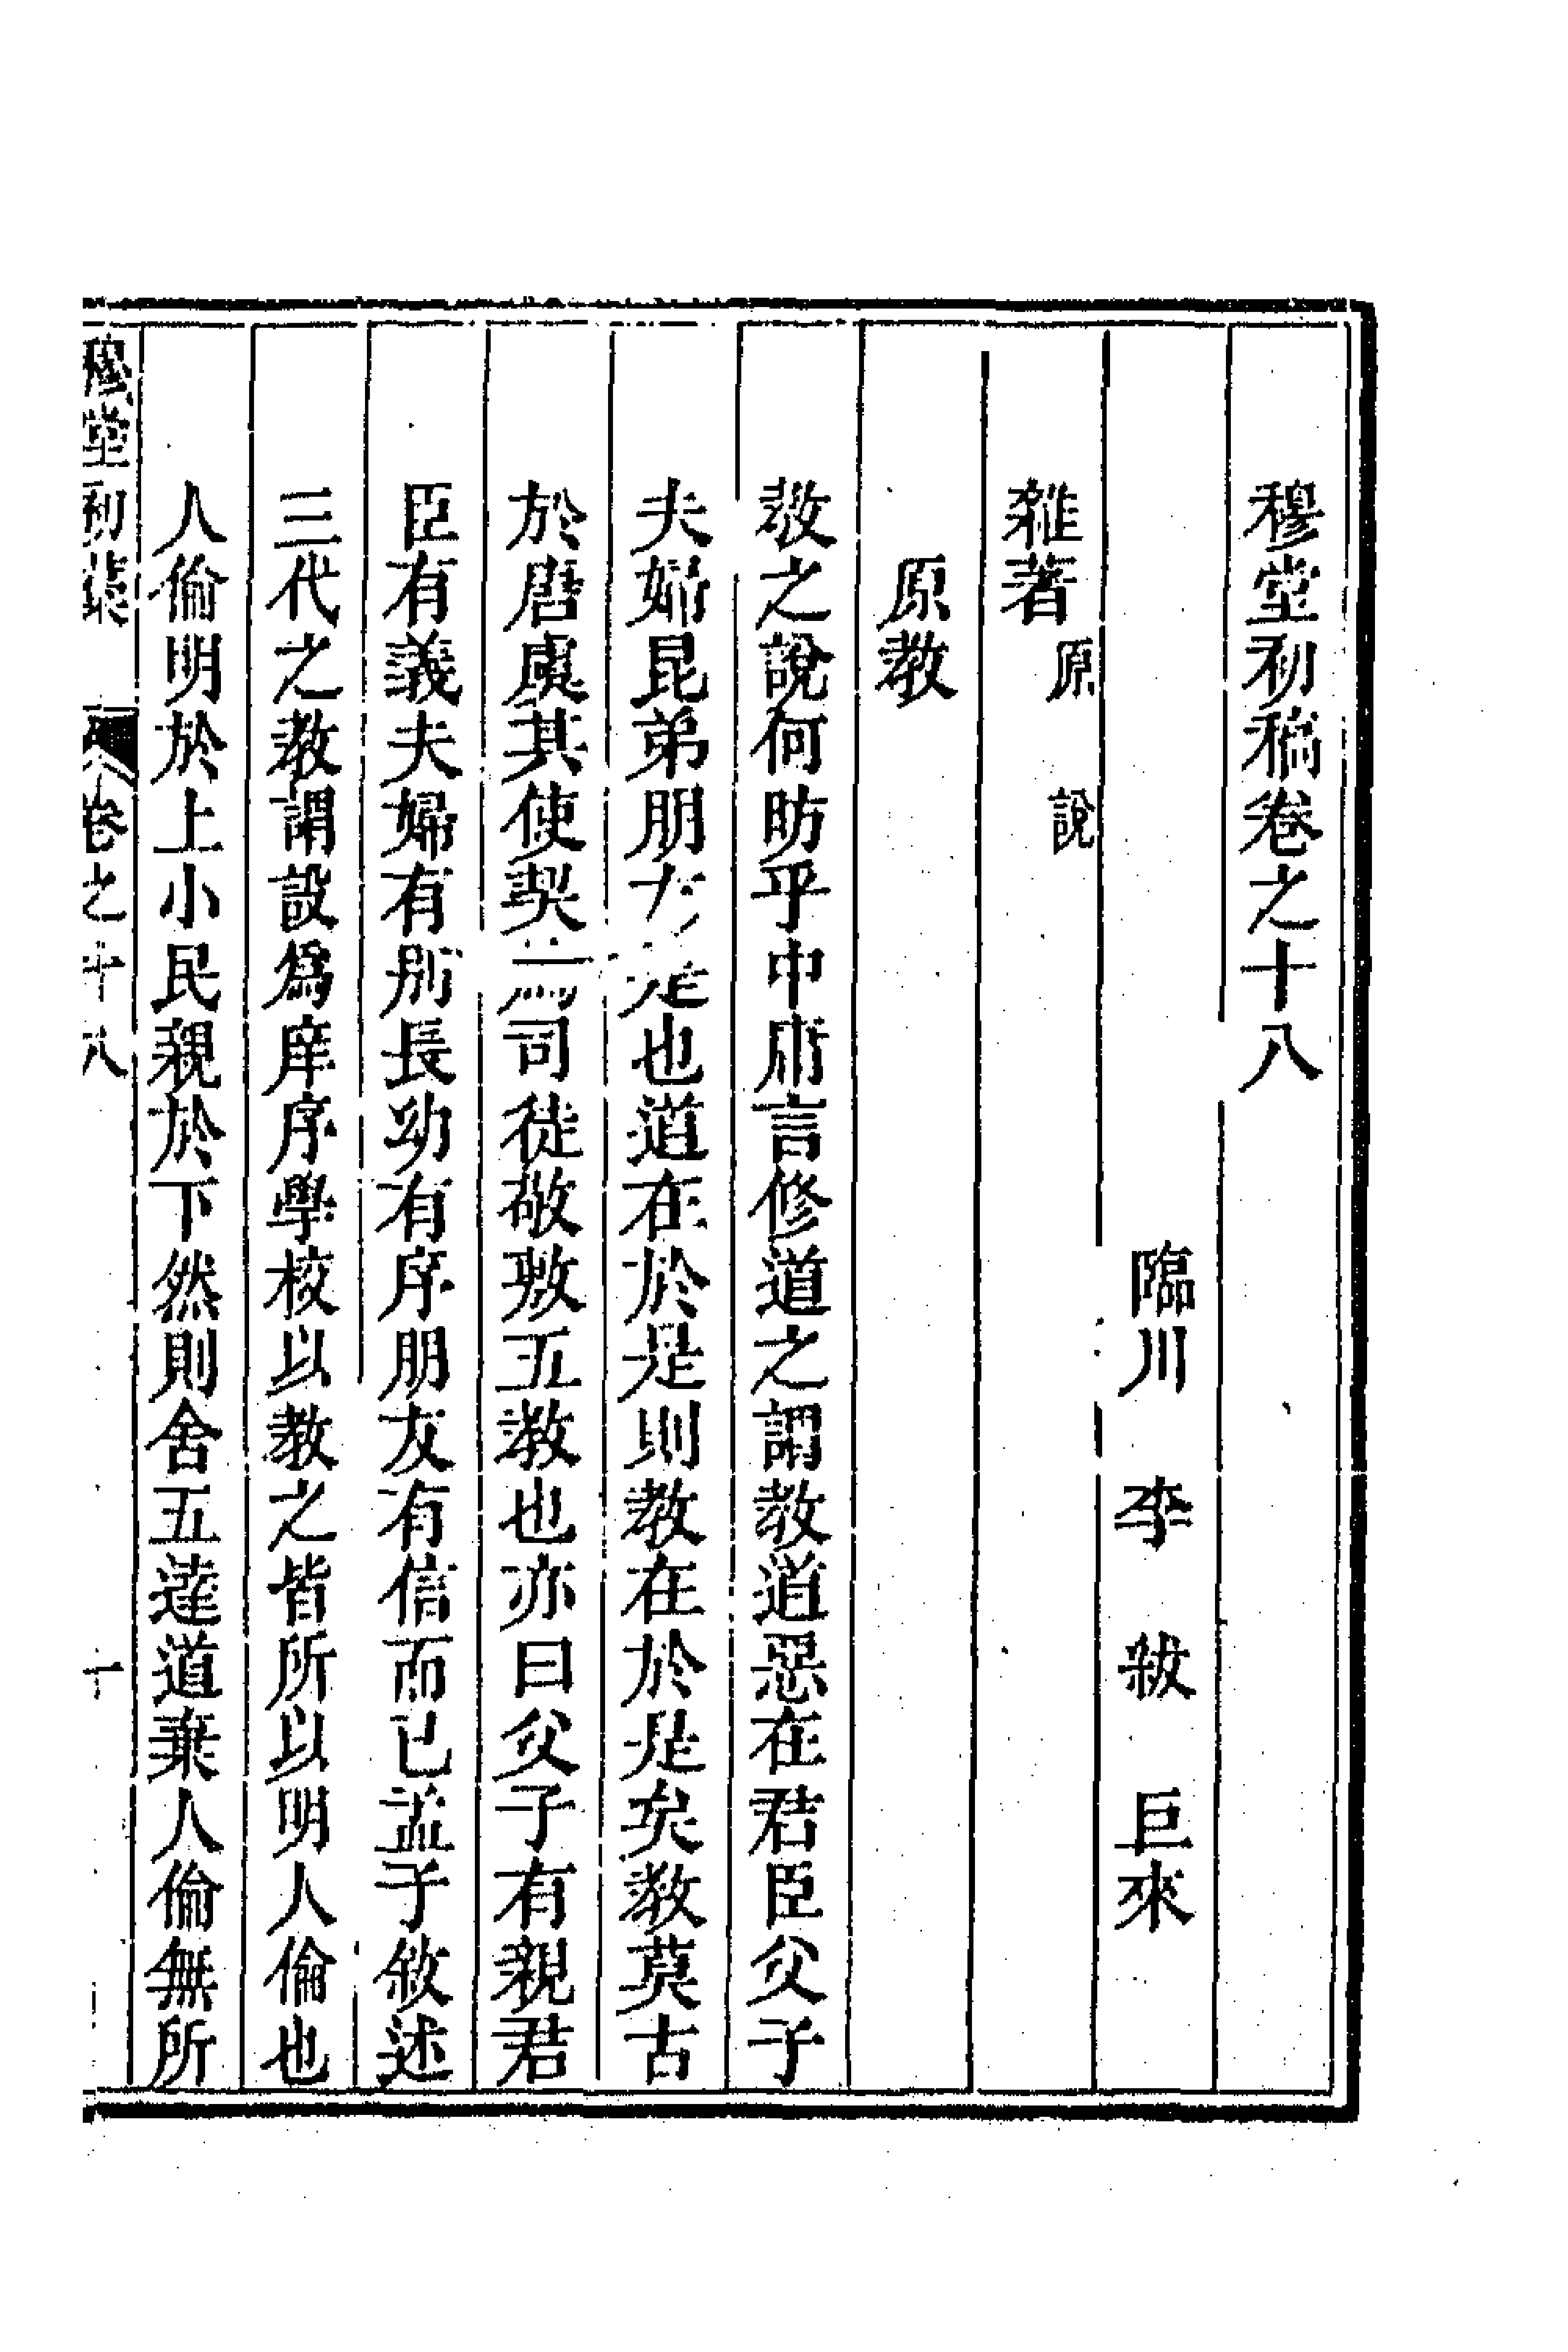 穆堂初稿卷之十八
臨川　李　紱　巨來
雜著原　說
原教
教之說何昉乎中庸言修道之謂教道惡在君臣父子
夫婦昆弟朋友是也道在於是則教在於是矣教莫古
於唐虞其使契爲司徒敬敷五教也亦曰父子有親君
臣有義夫婦有別長幼有序朋友有信而已孟子敘述
三代之教謂設爲庠序學校以教之皆所以明人倫也
人倫明於上小民親於下然則舍五達道棄人倫無所
穆堂初藁　卷之十八